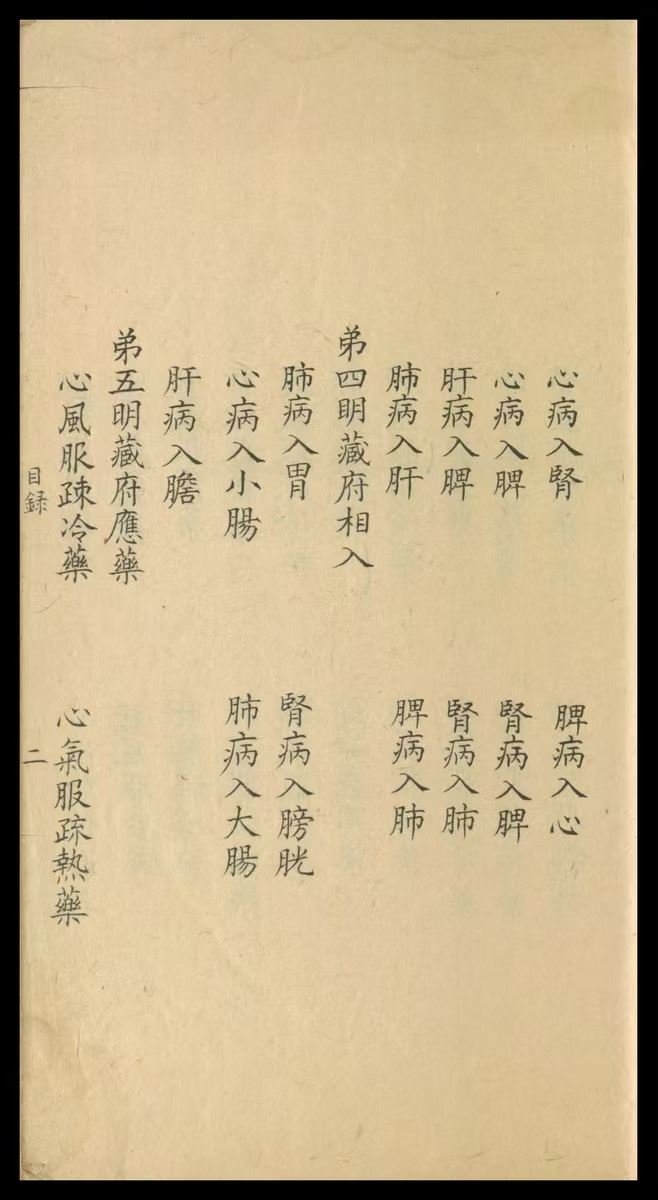 心病入腎　脾病入心
心病入脾　腎病入脾
肝病入脾　腎病入肺
肺病入肝　脾病入肺
弟四明藏府相入
肺病入胃　腎病入膀胱
心病入小腸　肺病入大腸
肝病入膽
弟五明藏府應藥
心風服疎冷藥　心氣服疏熱藥
目録　二